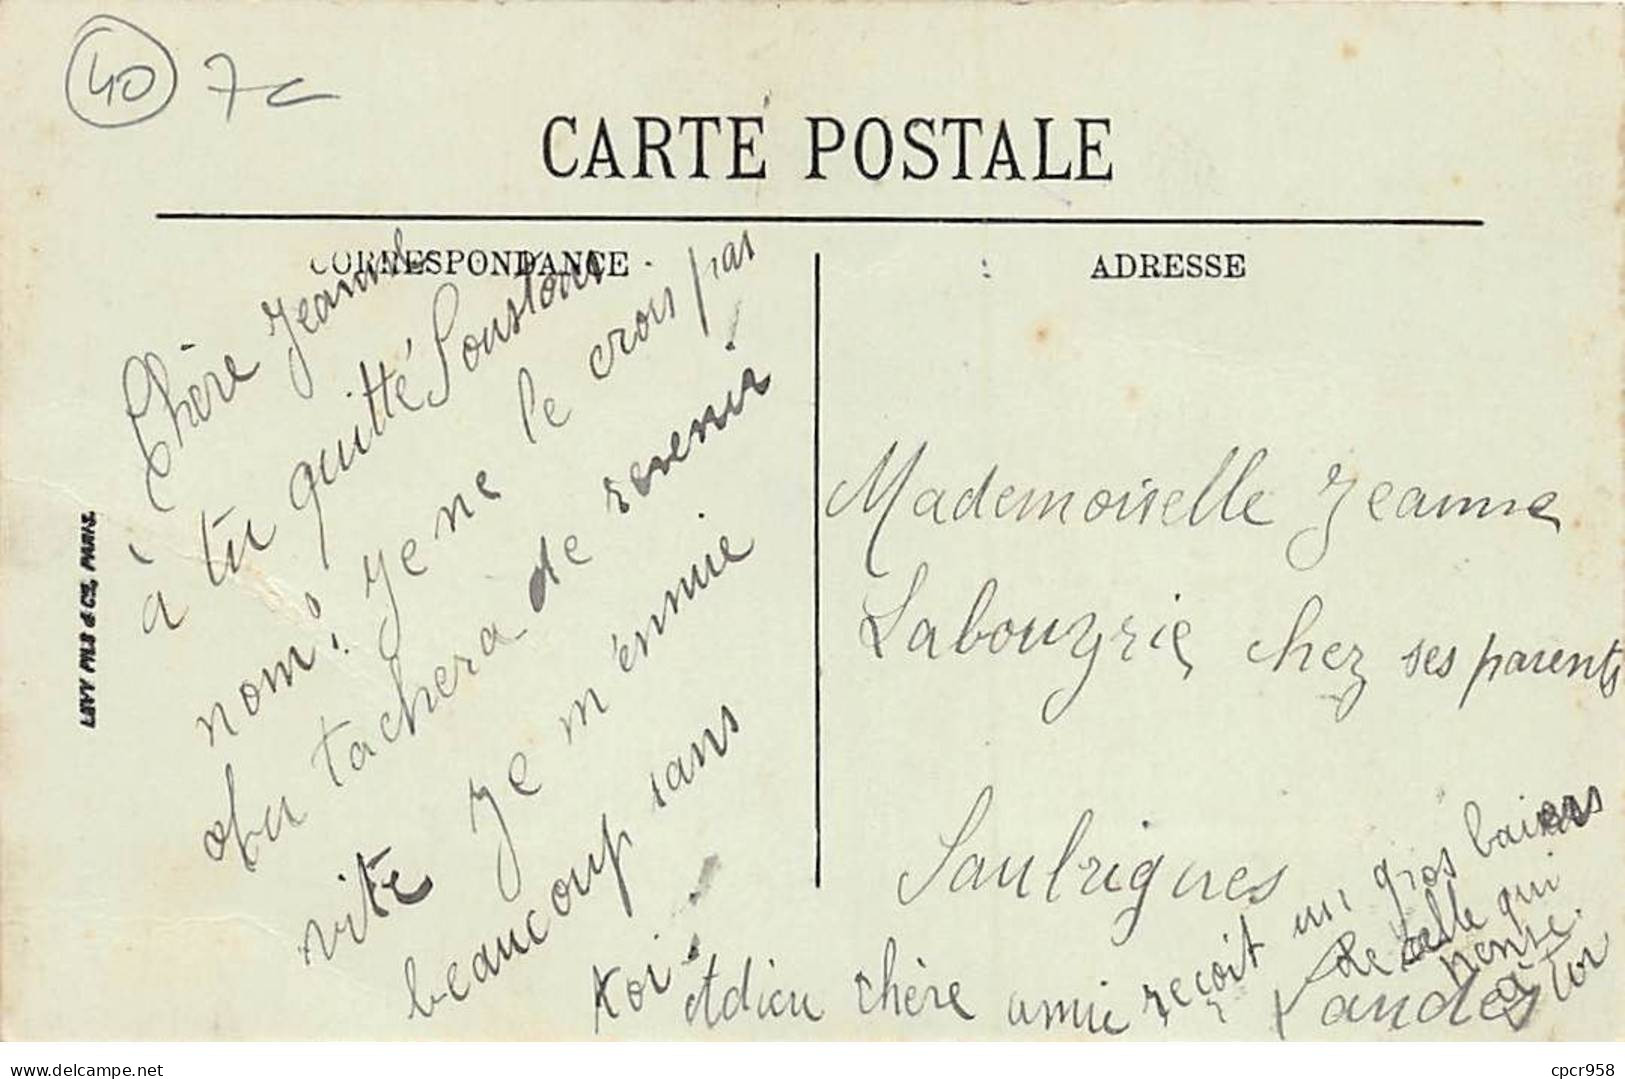 40 7c
CARTE POSTALE
CORRESPONDANCE
ADRESSE
LEVY FILS & CIE, PARIS
Chère Jeanne
à tu quitté Soustons
nom! Je ne le crois pas
tachera de revenir
vite Je m'ennuie
beaucoup sans
toi
Adieu chère amie reçoit un gros baisers
de celle qui
pense
à toi
Mademoiselle Jeanne
Labouyrie chez ses parents
Saubrigues
Landes
cpcr958